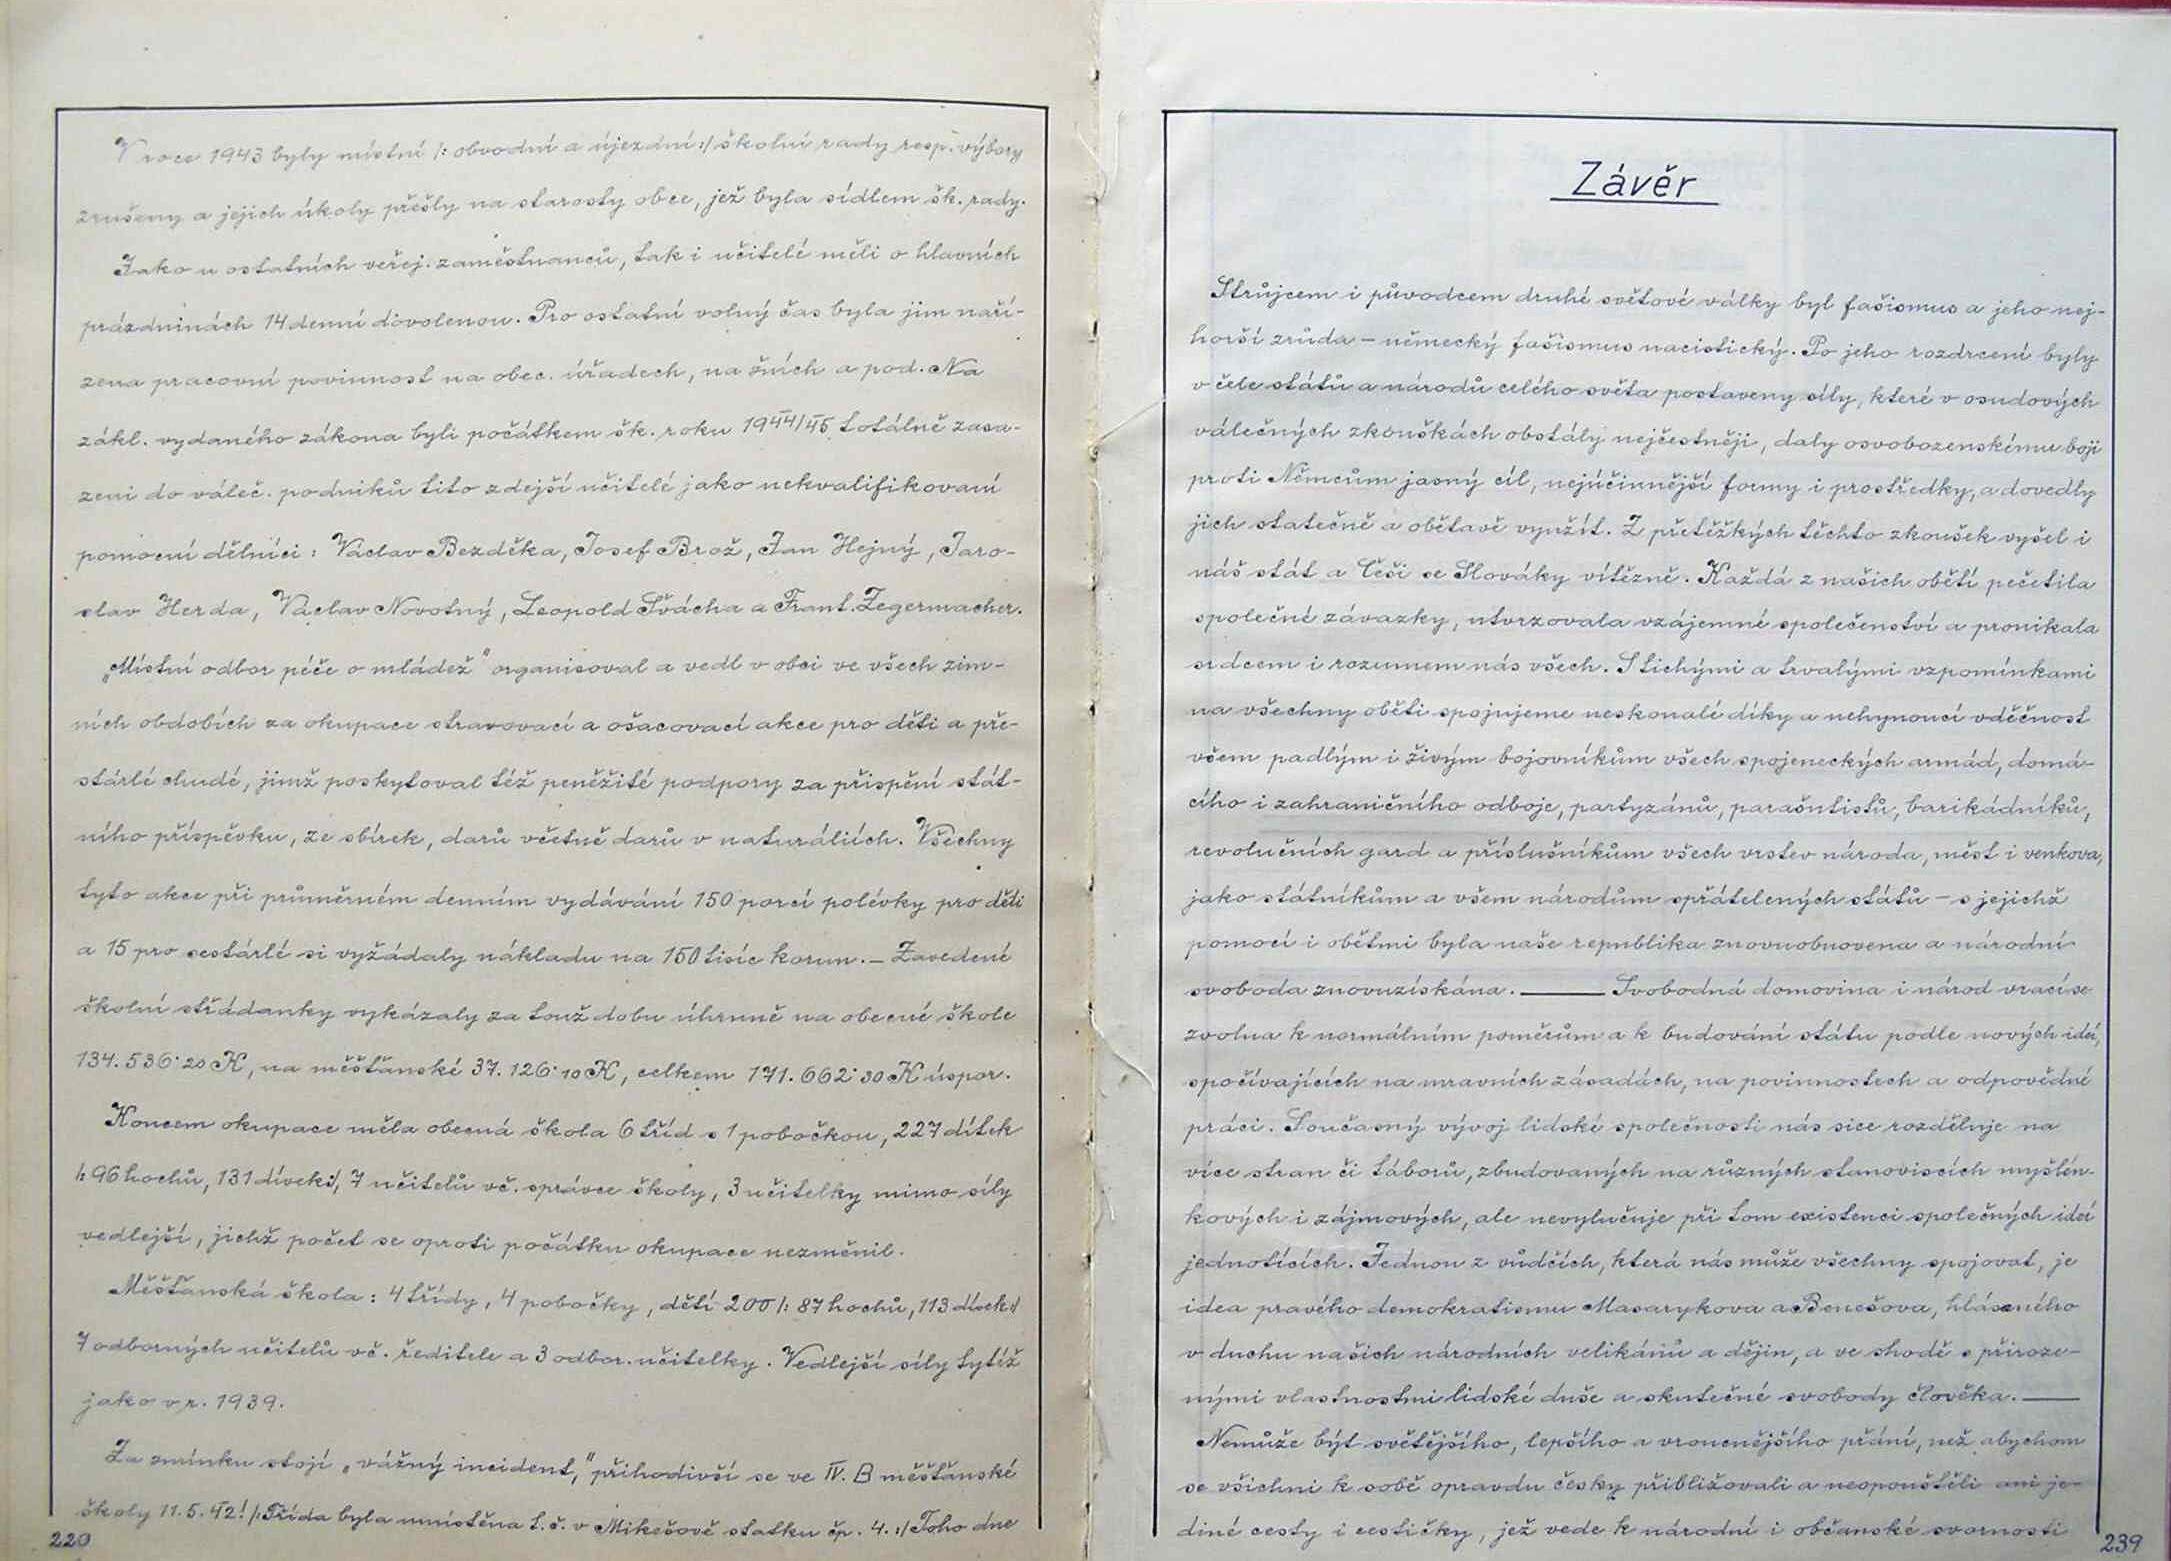 V roce 1943 byly místní /: obvodní a újezdní :/ školní rady resp. výbory
zrušeny a jejich úkoly přešly na starosty obce, jež byla sídlem šk. rady.
Jako u ostatních veřej. zaměstnanců, tak i učitelé měli o hlavních
prázdninách 14 denní dovolenou. Pro ostatní volný čas byla jim naří-
zena pracovní povinnost na obec. úřadech, na žních a pod. Na
zákl. vydaného zákona byli počátkem šk. roku 1944/45 totálně zasa-
zeni do váleč. podniků tito zdejší učitelé jako nekvalifikovaní
pomocní dělníci: Václav Bezděka, Josef Brož, Jan Hejný, Jaro-
slav Herda, Václav Novotný, Leopold Švácha a Frant. Zegermacher.
„Místní odbor péče o mládež" organisoval a vedl v obci ve všech zim-
ních obdobích za okupace stravovací a ošacovací akce pro děti a pře-
stárlé chudé, jimž poskytoval též peněžité podpory za přispění stát-
ního příspěvku, ze sbírek, darů včetně darů v naturáliích. Všechny
tyto akce při průměrném denním vydávání 150 porcí polévky pro děti
a 15 pro sestárlé si vyžádaly nákladu na 150 tisíc korun. – Zavedené
školní střádanky vykázaly za touž dobu úhrnně na obecné škole
134.536·20 K, na měšťanské 37.126·10 K, celkem 171.662·30 K úspor.
Koncem okupace měla obecná škola 6 tříd s 1 pobočkou, 227 dítek
/: 96 hochů, 131 dívek :/, 7 učitelů vč. správce školy, 3 učitelky mimo síly
vedlejší, jichž počet se oproti počátku okupace nezměnil.
Měšťanská škola: 4 třídy, 4 pobočky, dětí 200 /: 87 hochů, 113 dívek :/
7 odborných učitelů vč. ředitele a 3 odbor. učitelky. Vedlejší síly tytéž
jako v r. 1939.
Za zmínku stojí „vážný incident," přihodivší se ve IV. B měšťanské
školy 11.5.42! /: Třída byla umístěna t. č. v Mikešově statku čp. 4. :/ Toho dne
220
Závěr
Strůjcem i původcem druhé světové války byl fašismus a jeho nej-
horší zrůda – německý fašismus nacistický. Po jeho rozdrcení byly
v čele států a národů celého světa postaveny síly, které v osudových
válečných zkouškách obstály nejčestněji, daly osvobozenskému boji
proti Němcům jasný cíl, nejúčinnější formy i prostředky, a dovedly
jich statečně a obětavě využít. Z přetěžkých těchto zkoušek vyšel i
náš stát a Češi se Slováky vítězně. Každá z našich obětí pečetila
společné závazky, utvrzovala vzájemné společenství a pronikala
srdcem i rozumem nás všech. S tichými a trvalými vzpomínkami
na všechny oběti spojujeme neskonalé díky a nehynoucí vděčnost
všem padlým i živým bojovníkům všech spojeneckých armád, domá-
cího i zahraničního odboje, partyzánů, parašutistů, barikádníků,
revolučních gard a příslušníkům všech vrstev národa, měst i venkova,
jako státníkům a všem národům spřátelených států – s jejichž
pomocí i obětmi byla naše republika znovuobnovena a národní
svoboda znovuzískána. —— Svobodná domovina i národ vrací se
zvolna k normálním poměrům a k budování státu podle nových ideí,
spočívajících na mravních zásadách, na povinnostech a odpovědné
práci. Současný vývoj lidské společnosti nás sice rozděluje na
více stran či táborů, zbudovaných na různých stanoviscích myšlén-
kových i zájmových, ale nevylučuje při tom existenci společných ideí
jednotících. Jednou z vůdčích, která nás může všechny spojovat, je
idea pravého demokratismu Masarykova a Benešova, hlásaného
v duchu našich národních velikánů a dějin, a ve shodě s přiroze-
nými vlastnostmi lidské duše a skutečné svobody člověka. ——
Nemůže být světějšího, lepšího a vroucnějšího přání, než abychom
se všichni k sobě opravdu česky přibližovali a neopouštěli ani je-
diné cesty i cestičky, jež vede k národní i občanské svornosti
239